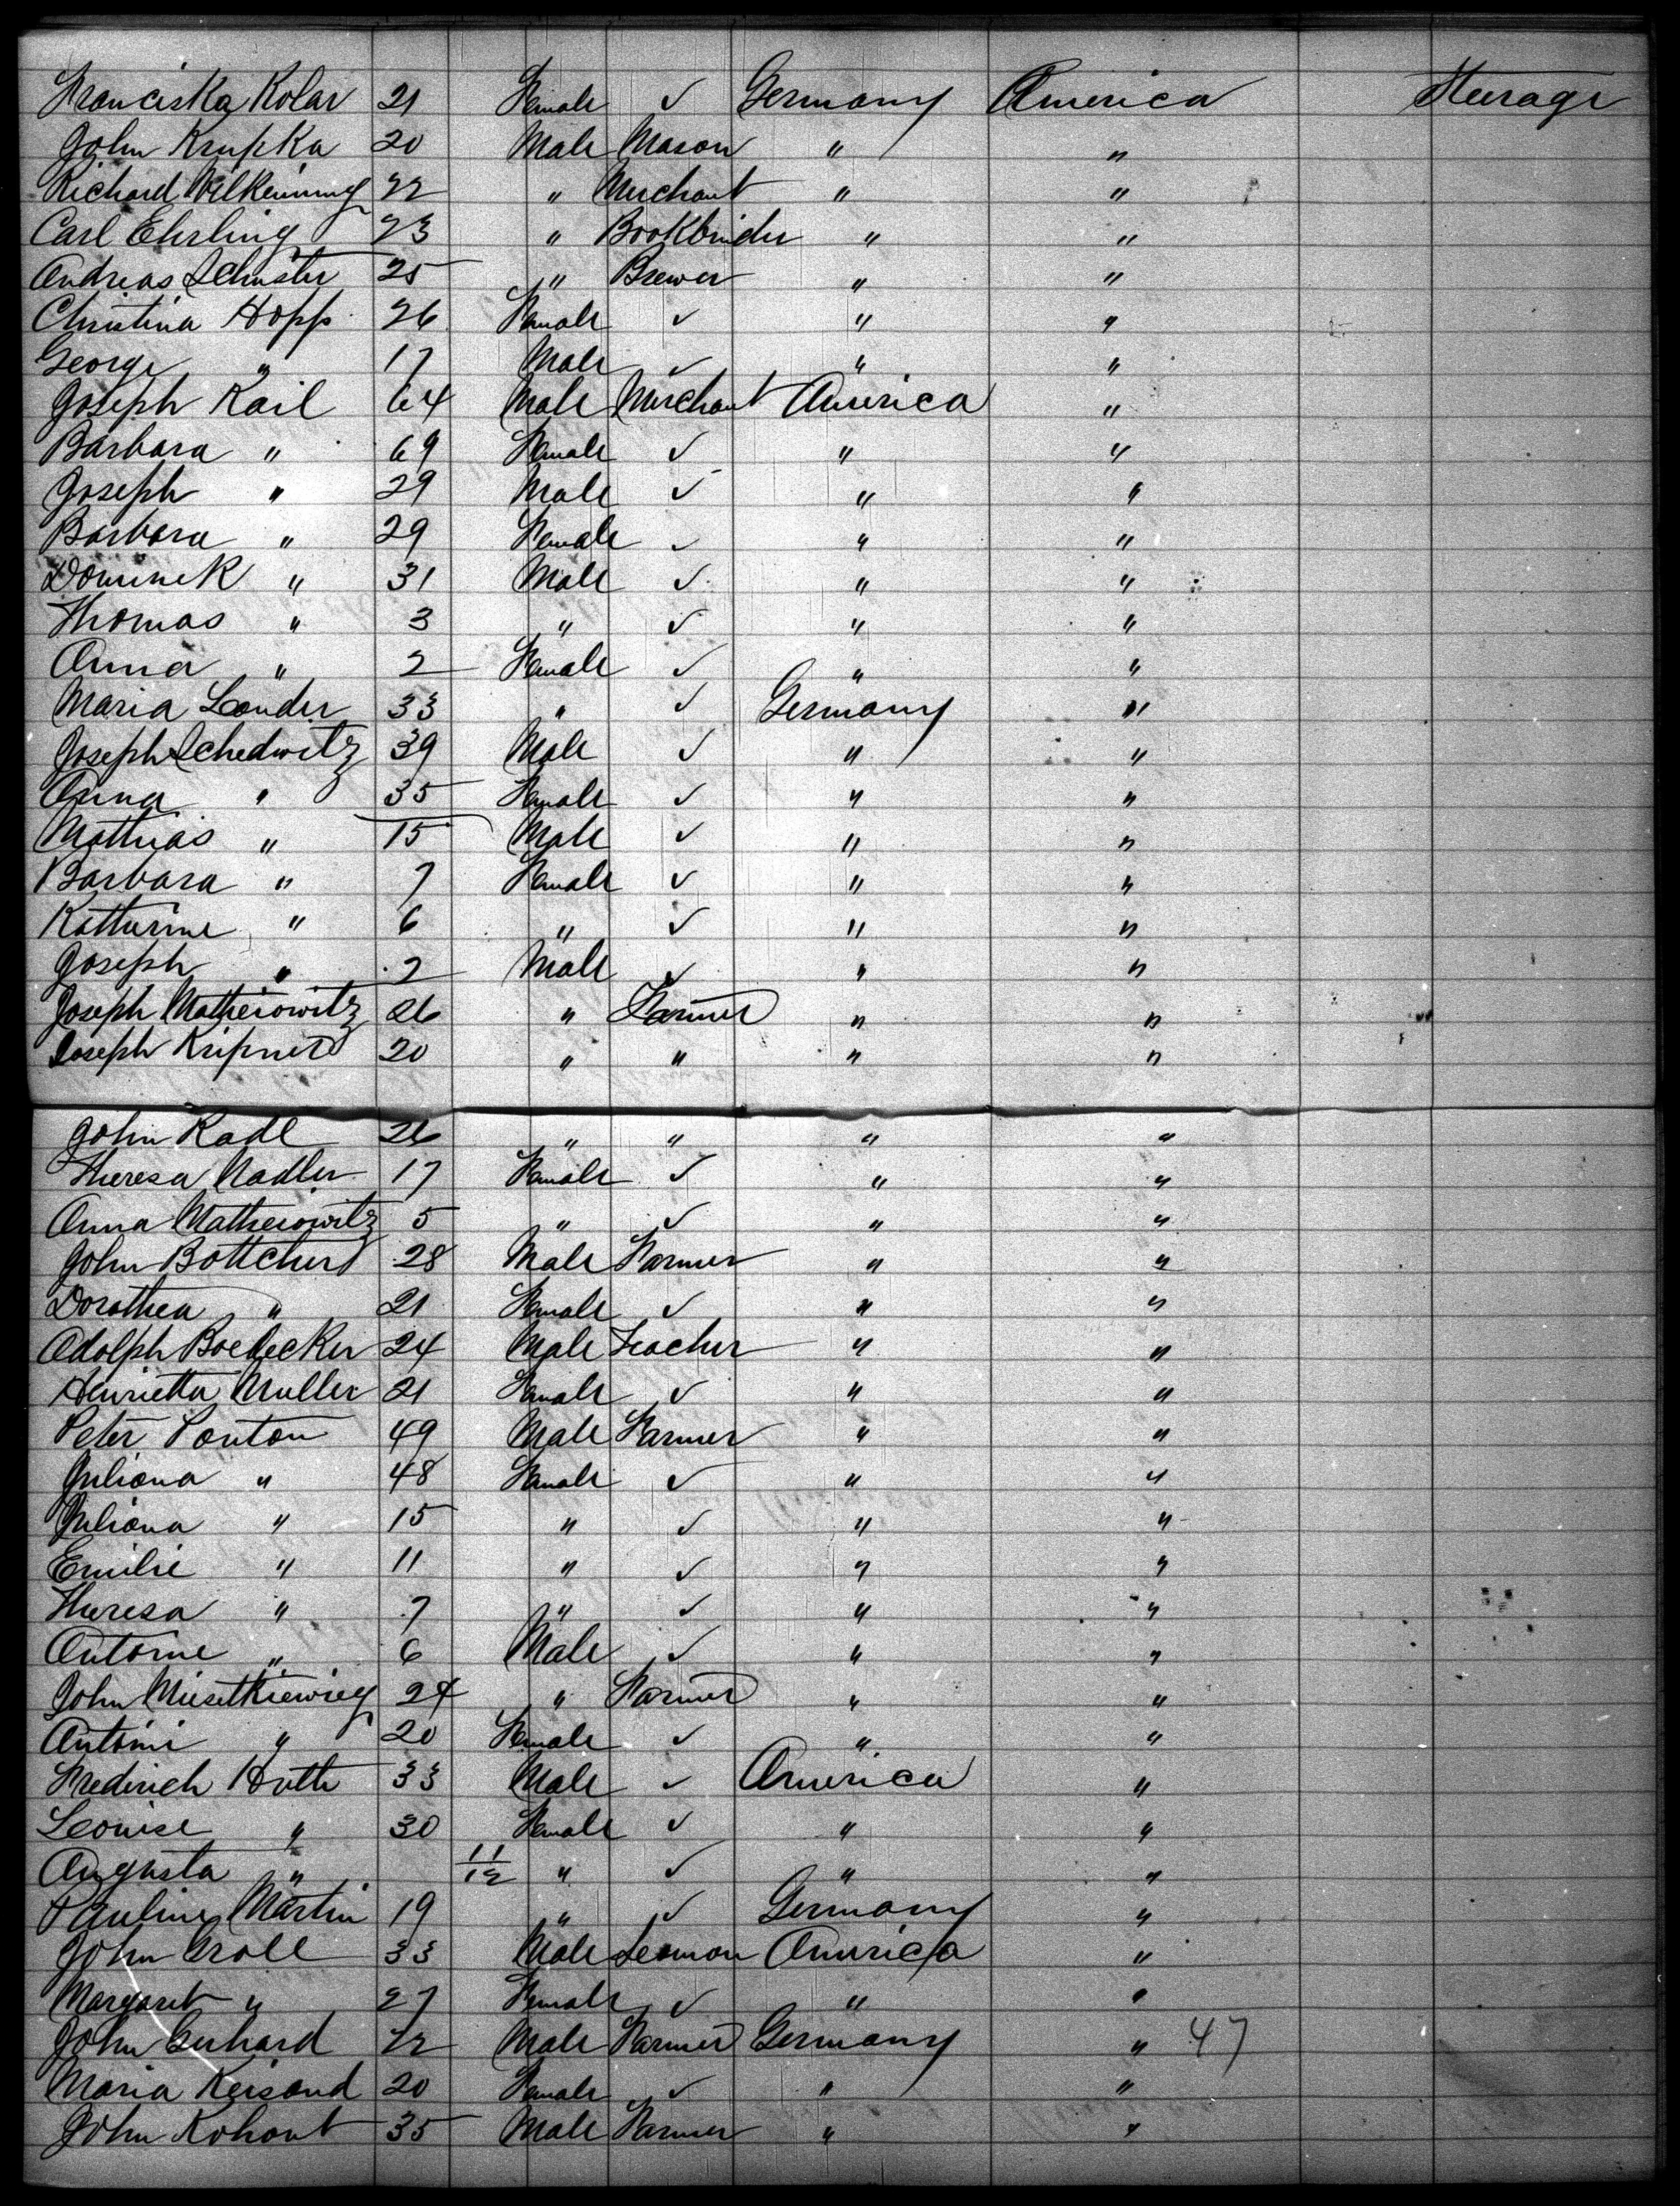 Franciska Kolar 21 Female ✓ Germany America Steerage
John Krupka 20 Male Mason " "
Richard Wilkening 22 " Merchant " "
Carl Ehrling 23 " Bookbinder " "
Andreas Schuster 25 " Brewer " "
Christina Hopp 26 Female ✓ " "
George " 17 Male ✓ " "
Joseph Kail 64 Male Merchant America "
Barbara " 69 Female ✓ " "
Joseph " 29 Male ✓ " "
Barbara " 29 Female ✓ " "
Dominek " 31 Male ✓ " "
Thomas " 3 " ✓ " "
Anna " 2 Female ✓ " "
Maria Londer 33 " ✓ Germany "
Joseph Schedwitz 39 Male ✓ " "
Anna " 35 Female ✓ " "
Mathias " 15 Male ✓ " "
Barbara " 7 Female ✓ " "
Katturine " 6 " ✓ " "
Joseph " 2 Male ✓ " "
Joseph Matheiowitz 26 " Farmer " "
Joseph Kripner 20 " " " "
John Radl 26 " " " "
Theresa Nadler 17 Female ✓ " "
Anna Matheiowitz 5 " ✓ " "
John Bottcher 28 Male Farmer " "
Dorothea " 21 Female ✓ " "
Adolph Boedecker 24 Male Teacher " "
Henrietta Muller 21 Female ✓ " "
Peter Ponton 49 Male Farmer " "
Juliana " 48 Female ✓ " "
Juliana " 15 " ✓ " "
Emilie " 11 " ✓ " "
Theresa " 7 " ✓ " "
Antoine " 6 Male ✓ " "
John 24 " Farmer " "
Antoni " 20 Female ✓ " "
Frederich Huth 33 Male ✓ America "
Leouise " 30 Female ✓ " "
Augusta " 11/12 " ✓ " "
Pauline Martin 19 " ✓ Germany "
John Croll 33 Male Seaman America "
Margaret " 27 Female ✓ " "
John Gerhard 22 Male Farmer Germany " 47
Maria Keisand 20 Female ✓ " "
John Kohout 35 Male Farmer " "